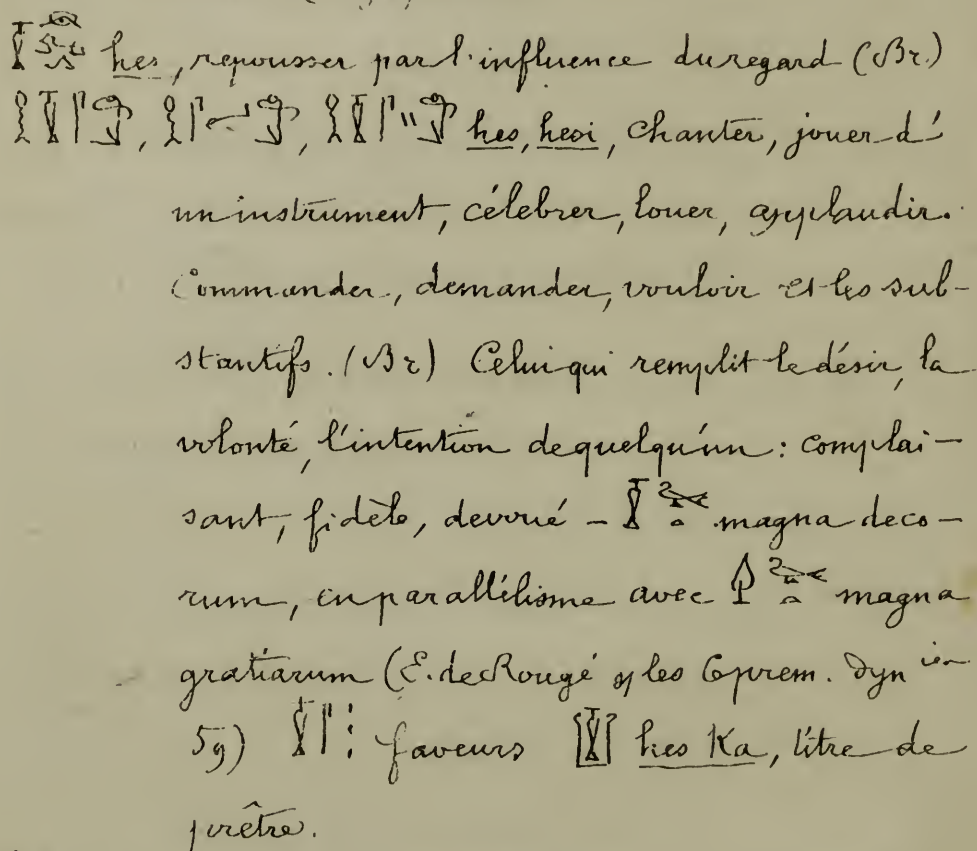 hes, repousser par l'influence du regard (Br.)
, , hes, hesi, chanter, jouer d'
un instrument, célebrer, louer, applaudir.
Commander, demander, vouloir et les sub-
stantifs. (Br) Celui qui remplit le désir, la
volonté, l'intention de quelqu'un : complai-
sant, fidèle, dévoué - magna deco-
rum, en parallélisme avec magna
gratiarum (E. de Rougé les 6 prem. dyn
59) faveurs hes Ka, titre de
prêtre.